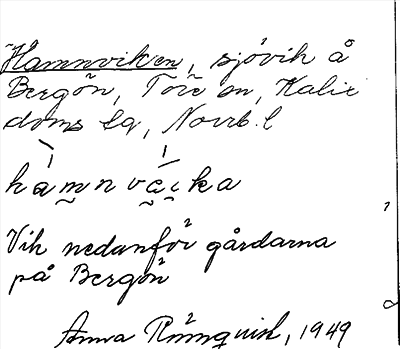 Hamnviken, sjövik å
Bergön, Töre sn, Kalix
doms lg, Norrb. l
hamnvi̯ka
Vik nedanför gårdarna
på Bergön
Anna Rönnquist, 1949